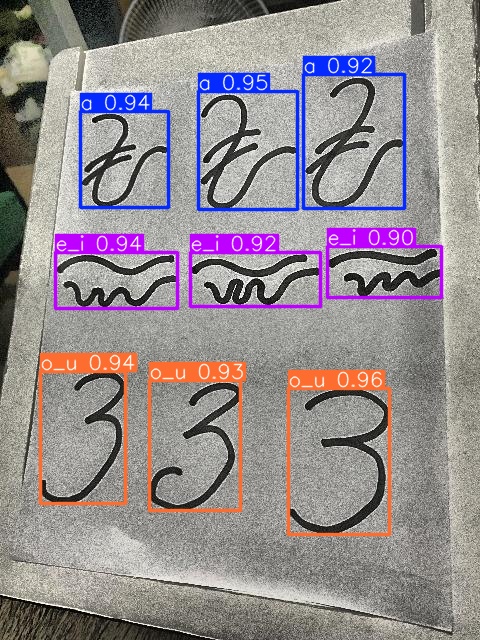 a 0.94 a 0.95 a 0.92
ᜀ ᜀ ᜀ
e_i 0.94 e_i 0.92 e_i 0.90
ᜁ ᜁ ᜁ
o_u 0.94 o_u 0.93 o_u 0.96
ᜂ ᜂ ᜂ